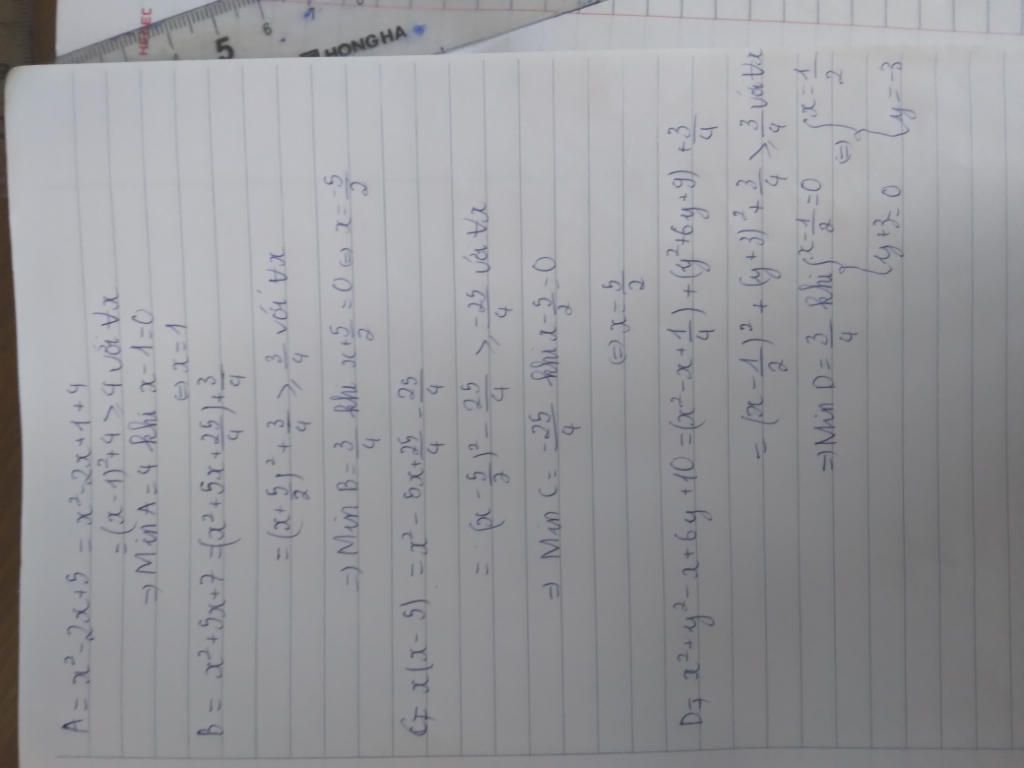 5
6
HONG HA
A = x² - 2x + 5 = x² - 2x + 1 + 4
= (x - 1)² + 4 ≥ 4 với ∀x
=> Min A = 4 khi x - 1 = 0
⇔ x = 1
B = x² + 5x + 7 = (x² + 5x + 25/4) + 3/4
= (x + 5/2)² + 3/4 ≥ 3/4 với ∀x
=> Min B = 3/4 khi x + 5/2 = 0 ⇔ x = -5/2
C = x(x - 5) = x² - 5x + 25/4 - 25/4
= (x - 5/2)² - 25/4 ≥ -25/4 với ∀x
=> Min C = -25/4 khi x - 5/2 = 0
⇔ x = 5/2
D = x² + y² - x + 6y + 10 = (x² - x + 1/4) + (y² + 6y + 9) + 3/4
= (x - 1/2)² + (y + 3)² + 3/4 ≥ 3/4 với ∀x
=> Min D = 3/4 khi { x - 1/2 = 0 ⇔ { x = 1/2
{ y + 3 = 0 { y = -3